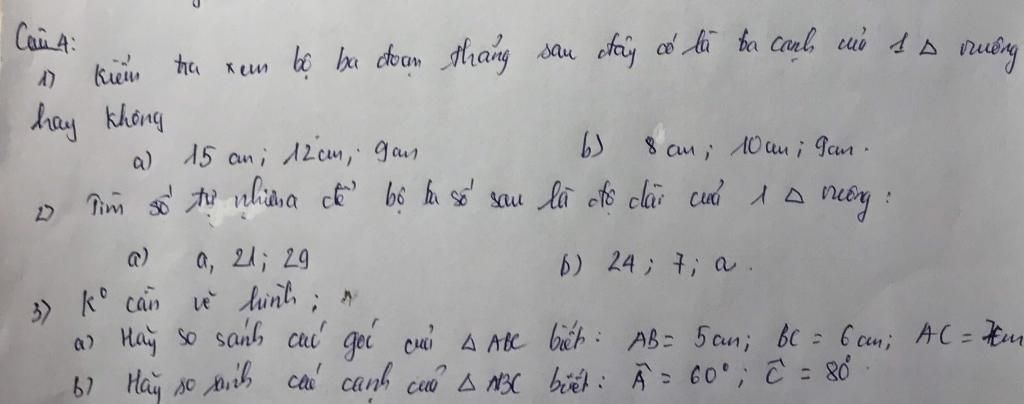 Câu 4:
1) Kiểm tra xem bộ ba đoạn thẳng sau đây có là ba cạnh của 1 Δ vuông
hay không
a) 15 cm; 12 cm; 9cm b) 8 cm; 10 cm; 9cm.
2) Tìm số tự nhiên a để bộ ba số sau là độ dài của 1 Δ vuông:
a) a, 21; 29 b) 24; 7; a.
3) K° cần vẽ hình;
a) Hãy so sánh các góc của Δ ABC biết: AB = 5cm; BC = 6 cm; AC = 7cm
b) Hãy so sánh các cạnh của Δ ABC biết: Â = 60°; Ĉ = 80°.